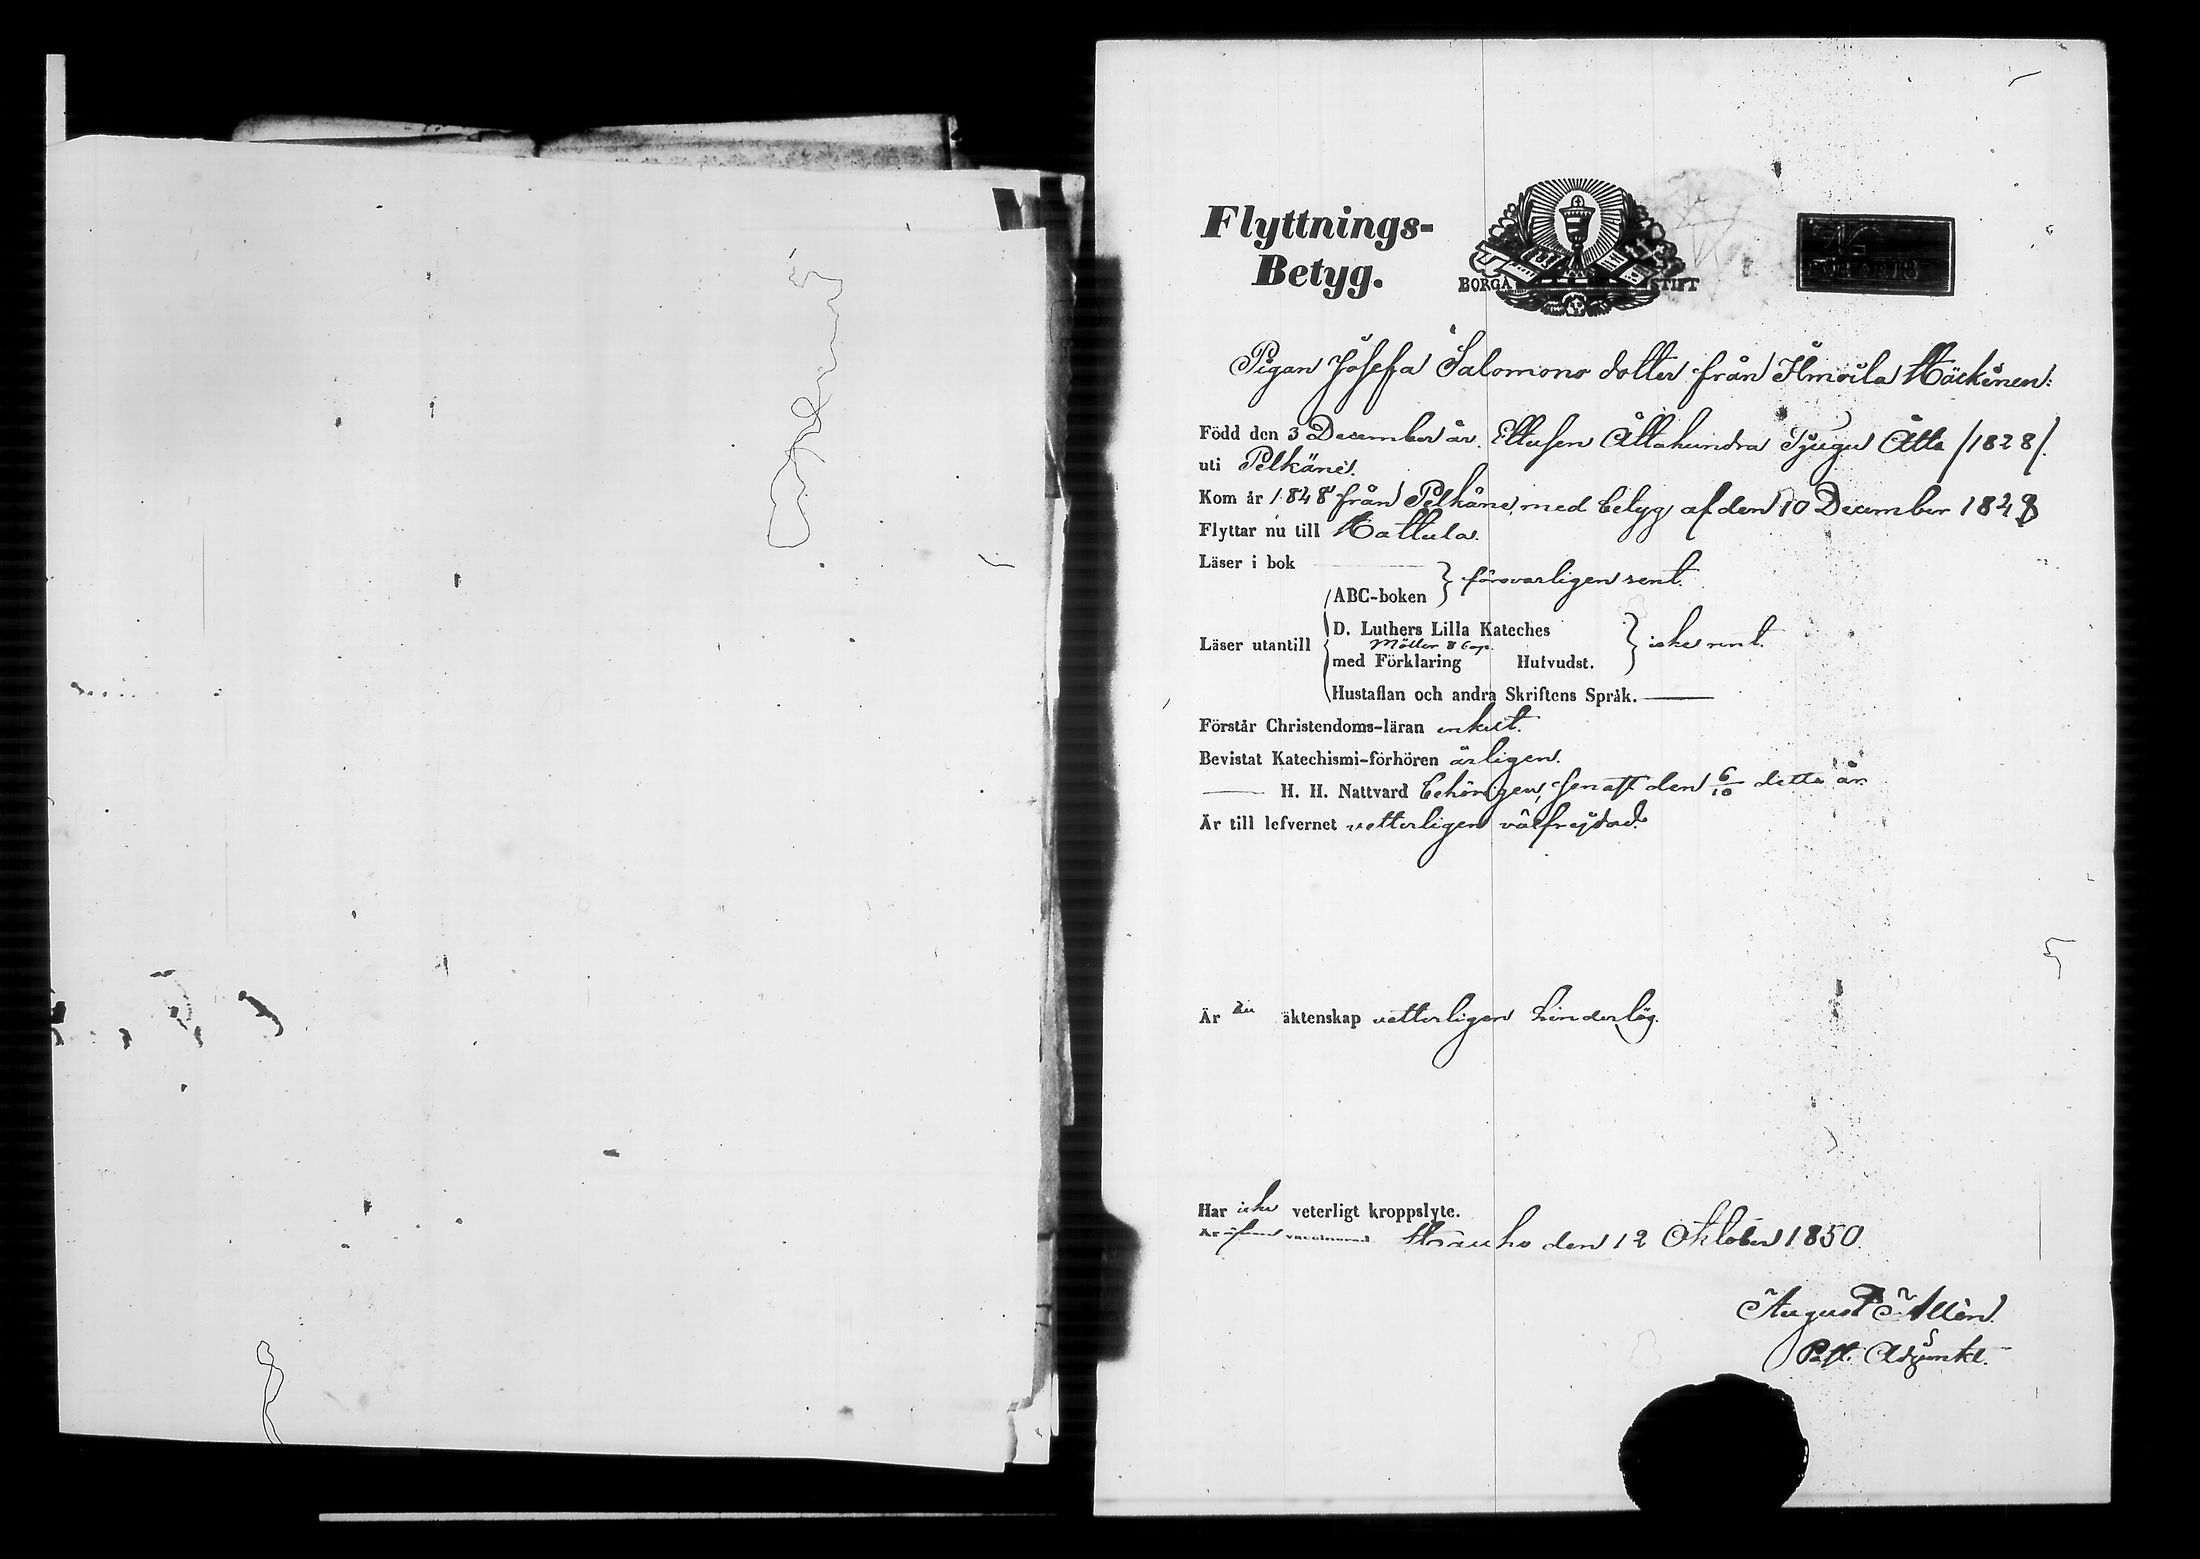 Flyttnings-
Betyg.
BORGÅ STIFT
Pigan Josefa Salomons dotter från Ilmoila Mäckinen:
Född den 3 December år. Ettusen Åttahundra Tjugu Åtta /1828/.
uti Pelkäne.
Kom år 1848 från Pelkäne, med betyg af den 10 December 1848
Flyttar nu till Hattula.
Läser i bok
försvarligen rent.
ABC-boken
D. Luthers Lilla Kateches
Läser utantill
Möller 8 Cap.
icke rent.
med Förklaring Hufvudst.
Hustaflan och andra Skriftens Språk.
Förstår Christendoms-läran enkelt.
Bevistat Katechismi-förhören årligen.
H. H. Nattvard behörigen, senast den 6/10 detta år.
Är till lefvernet vetterligen välfrejdad.
Är till äktenskap vetterligen hinderlög.
Har icke veterligt kroppslyte.
Är vaccinerad
den 12 Oktober 1850.
August Allén.
Past. Adjunkt.